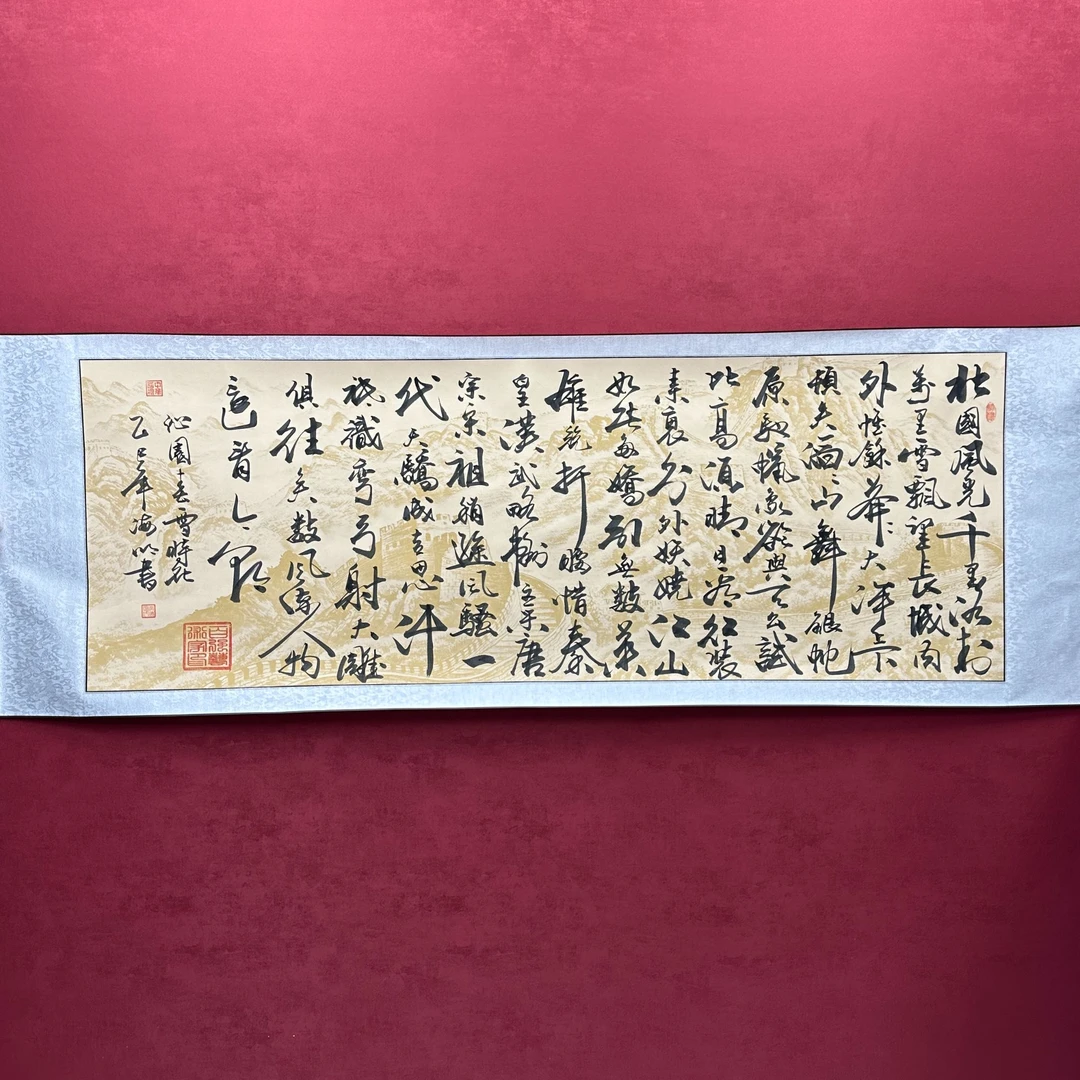 北國風光千里冰封
萬里雪飄望長城內
外惟餘莽莽大河上下
頓失滔滔山舞銀蛇
原馳蠟象欲與天公試
比高須晴日看紅裝
素裹分外妖嬈江山
如此多嬌引無數英
雄競折腰惜秦
皇漢武略輸文采唐
宗宋祖稍遜風騷一
代天驕成吉思汗
祗識彎弓射大雕
俱往矣數風流人物
還看今朝
沁園春雪時在
乙巳年海書